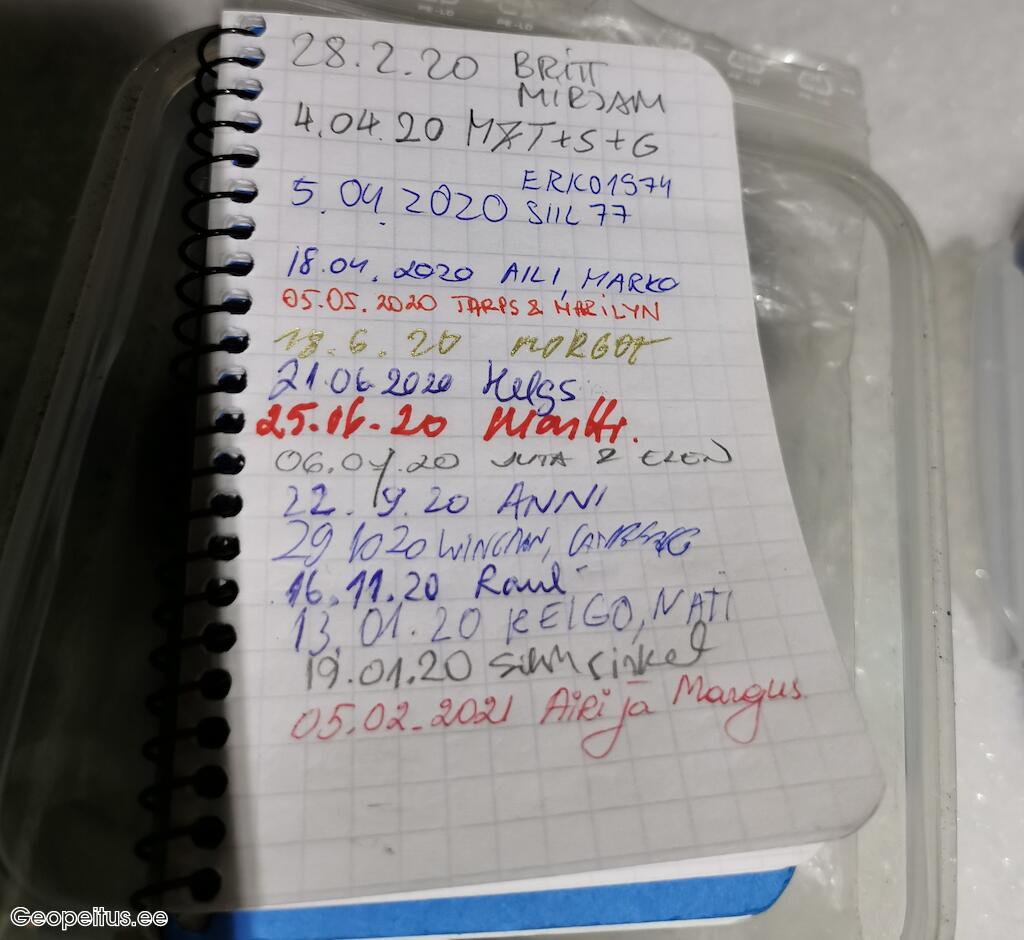 28.2.20 BRITT
MIRJAM
4.04.20 MZT+S+G
5.04.2020 ERKO1974
SIIL77
18.04.2020 AILI, MARKO
05.05.2020 TARPS & MARILYN
18.6.20 MORGOT
21.06.2020 Helgs
25.06.20 Martti.
06.07.20 JUTA & ELEN
22.9.20 ANNI
29 10 20 WINGMAN,
16.11.20 Raul
13.01.20 KEIGO, NATI
19.01.20
05.02.2021 Airi ja Margus
Geopeitus.ee